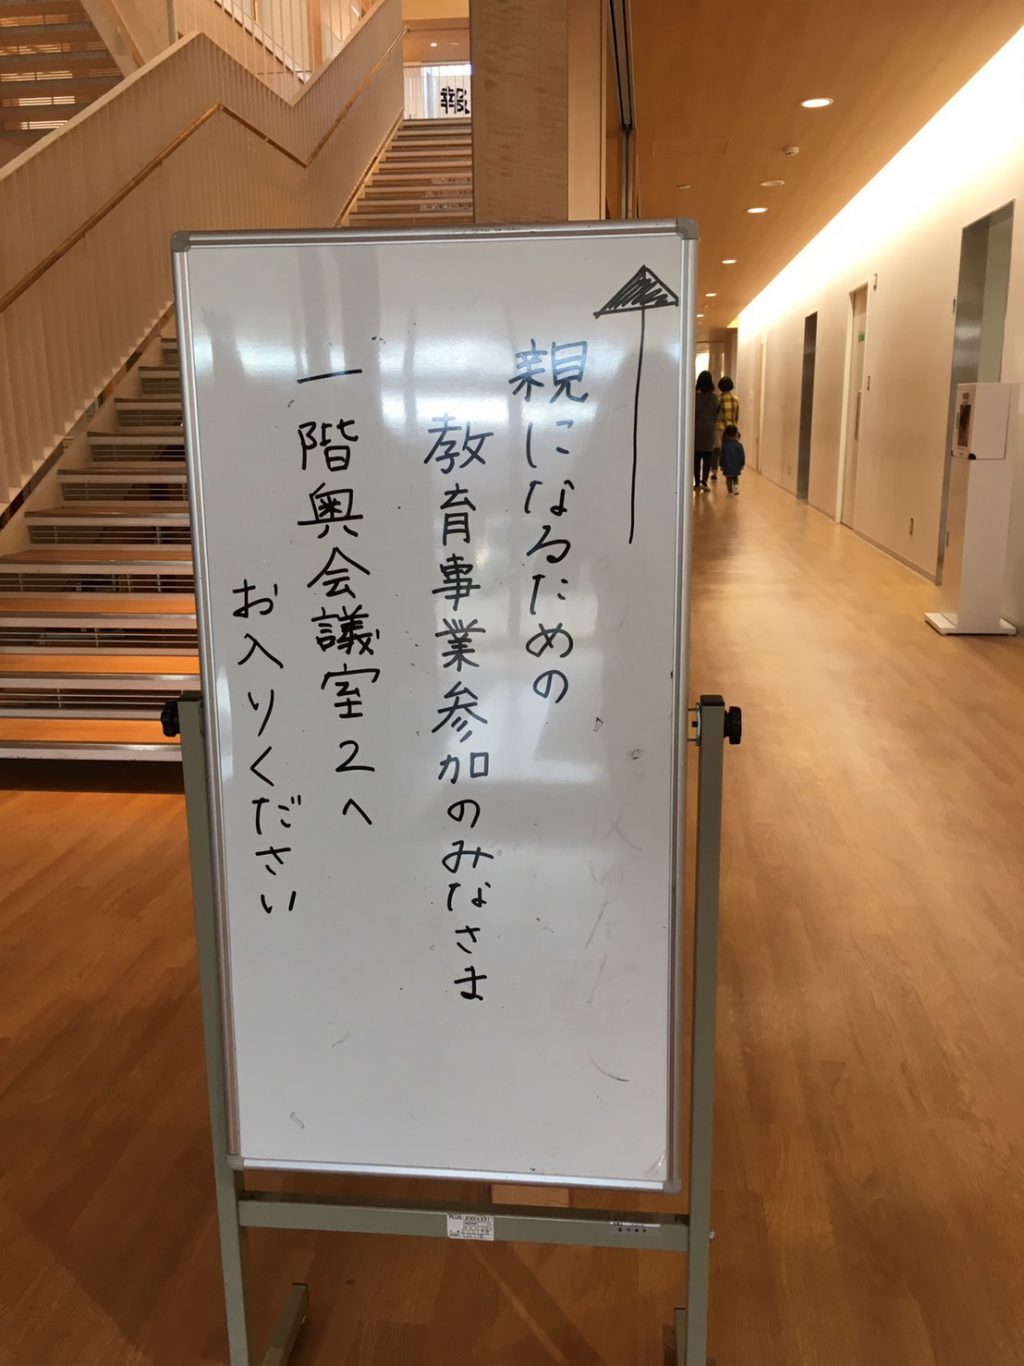 親になるための
教育事業参加のみなさま
一階奥会議室2へ
お入りください
報